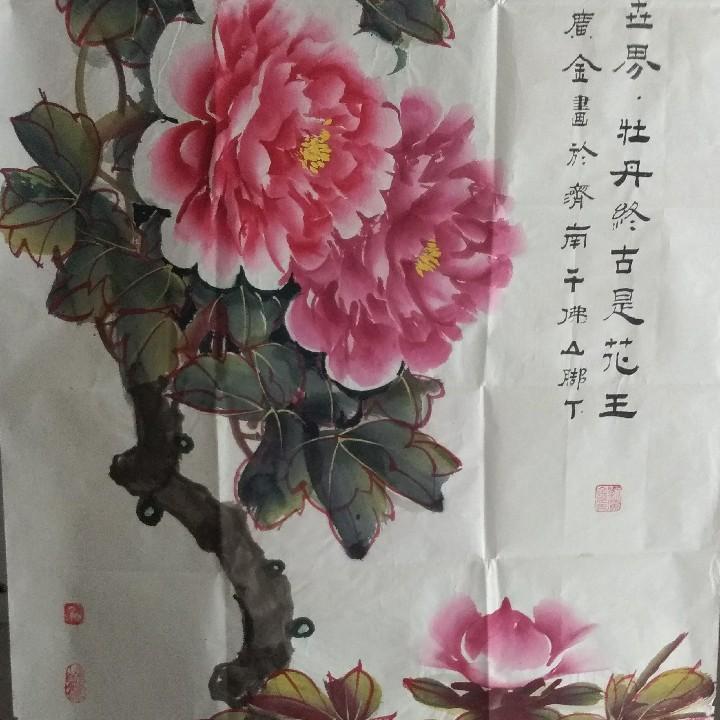 世界·牡丹終古是花王
廣金畫於濟南千佛山腳下